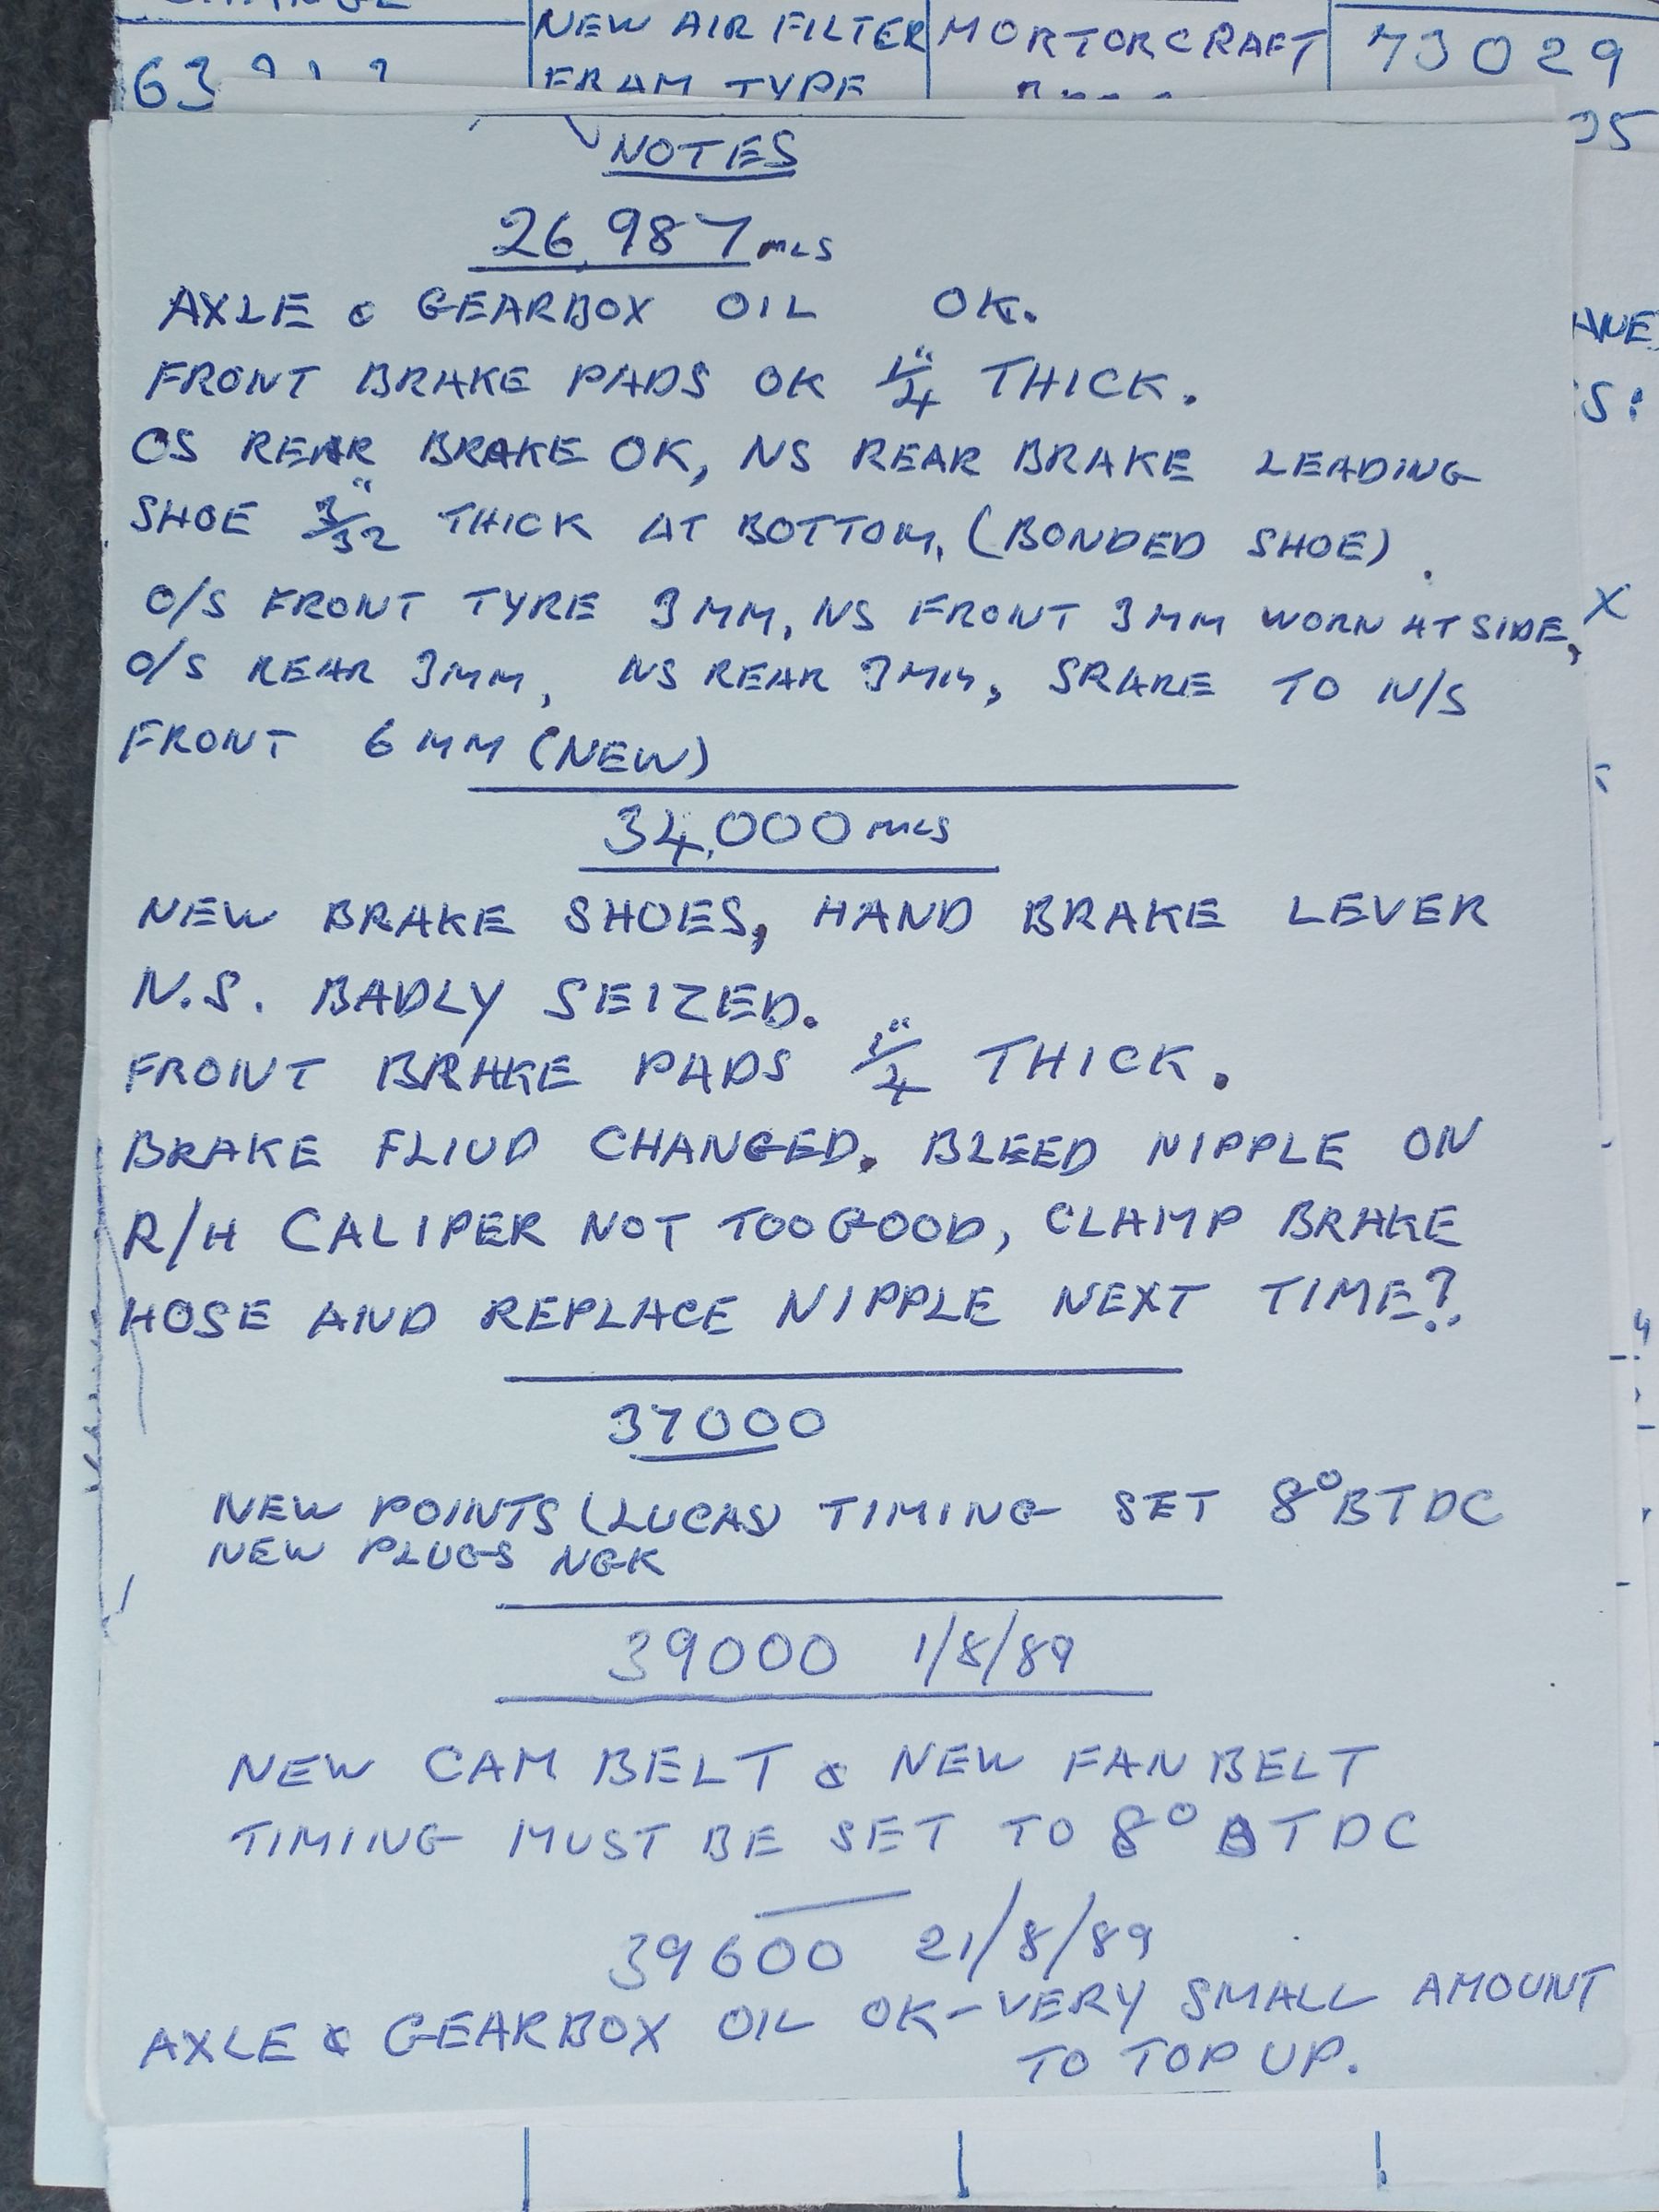 NEW AIR FILTER MORTORCRAFT 73029
63 FRAM TYPE
NOTES
26,987 MLS
AXLE & GEARBOX OIL OK.
FRONT BRAKE PADS OK 1/4" THICK.
OS REAR BRAKE OK, NS REAR BRAKE LEADING
SHOE 3/32" THICK AT BOTTOM, (BONDED SHOE).
O/S FRONT TYRE 3MM, NS FRONT 3MM WORN AT SIDE, X
O/S REAR 3MM, NS REAR 3MM, SPARE TO N/S
FRONT 6MM (NEW)
34,000 MLS
NEW BRAKE SHOES, HAND BRAKE LEVER
N.S. BADLY SEIZED.
FRONT BRAKE PADS 1/4" THICK.
BRAKE FLIUD CHANGED. BLEED NIPPLE ON
R/H CALIPER NOT TOO GOOD, CLAMP BRAKE
HOSE AND REPLACE NIPPLE NEXT TIME?.
37000
NEW POINTS (LUCAS) TIMING SET 8° BTDC
NEW PLUGS NGK
39000 1/8/89
NEW CAM BELT & NEW FAN BELT
TIMING MUST BE SET TO 8° BTDC
39600 21/8/89
AXLE & GEARBOX OIL OK - VERY SMALL AMOUNT
TO TOP UP.